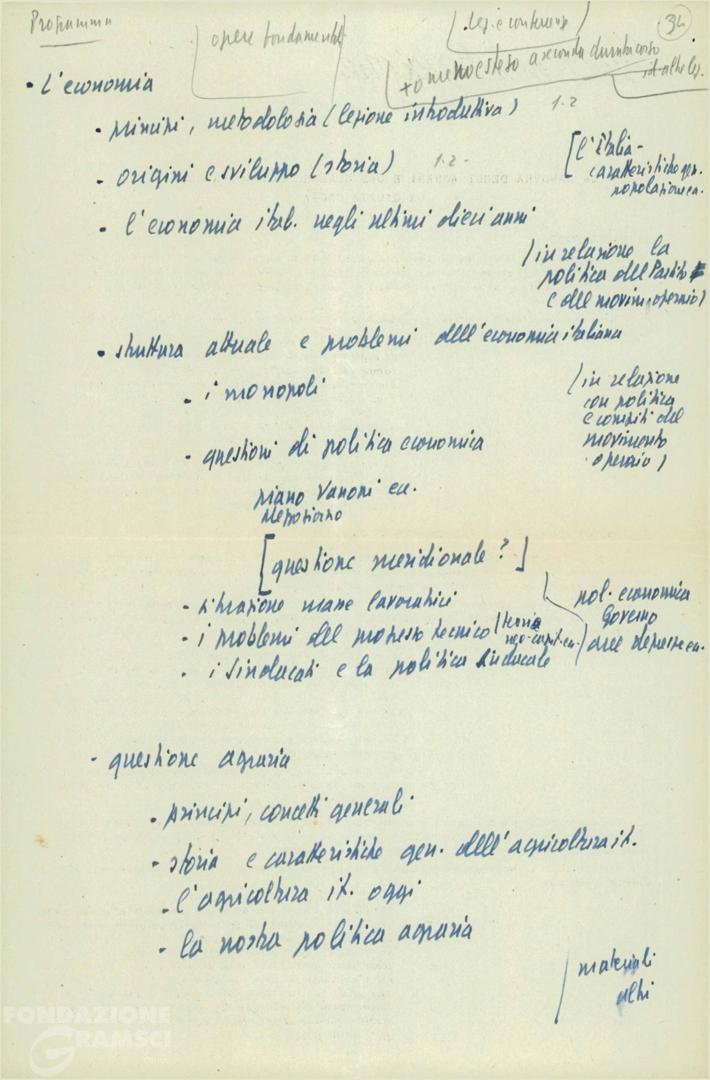 Programma
opere fondamentali
lez. e conferenze
34
+ o meno esteso a seconda durata corso
ist. altre lez.
• L'economia
• principi, metodologia (lezione introduttiva) 1-2
• origini e sviluppo (storia) 1-2-
[l'Italia -
caratteristiche gen.
popolazione ecc.
• l'economia ital. negli ultimi dieci anni
(in relazione la
politica del Partito
e del movim. operaio)
• struttura attuale e problemi dell'economia italiana
• i monopoli
(in relazione
con politica
e compiti del
movimento
operaio)
• questioni di politica economica
piano Vanoni ecc.
[questione meridionale?]
• situazione masse lavoratrici
• i problemi del progresso tecnico (teoria
neo-capit. ecc.
• i sindacati e la politica sindacale
pol. economica
Governo
aree depresse ecc.
- questione agraria
• principi, concetti generali
• storia e caratteristiche gen. dell'agricoltura it.
• l'agricoltura it. oggi
• la nostra politica agraria
materiali
altri
FONDAZIONE
GRAMSCI